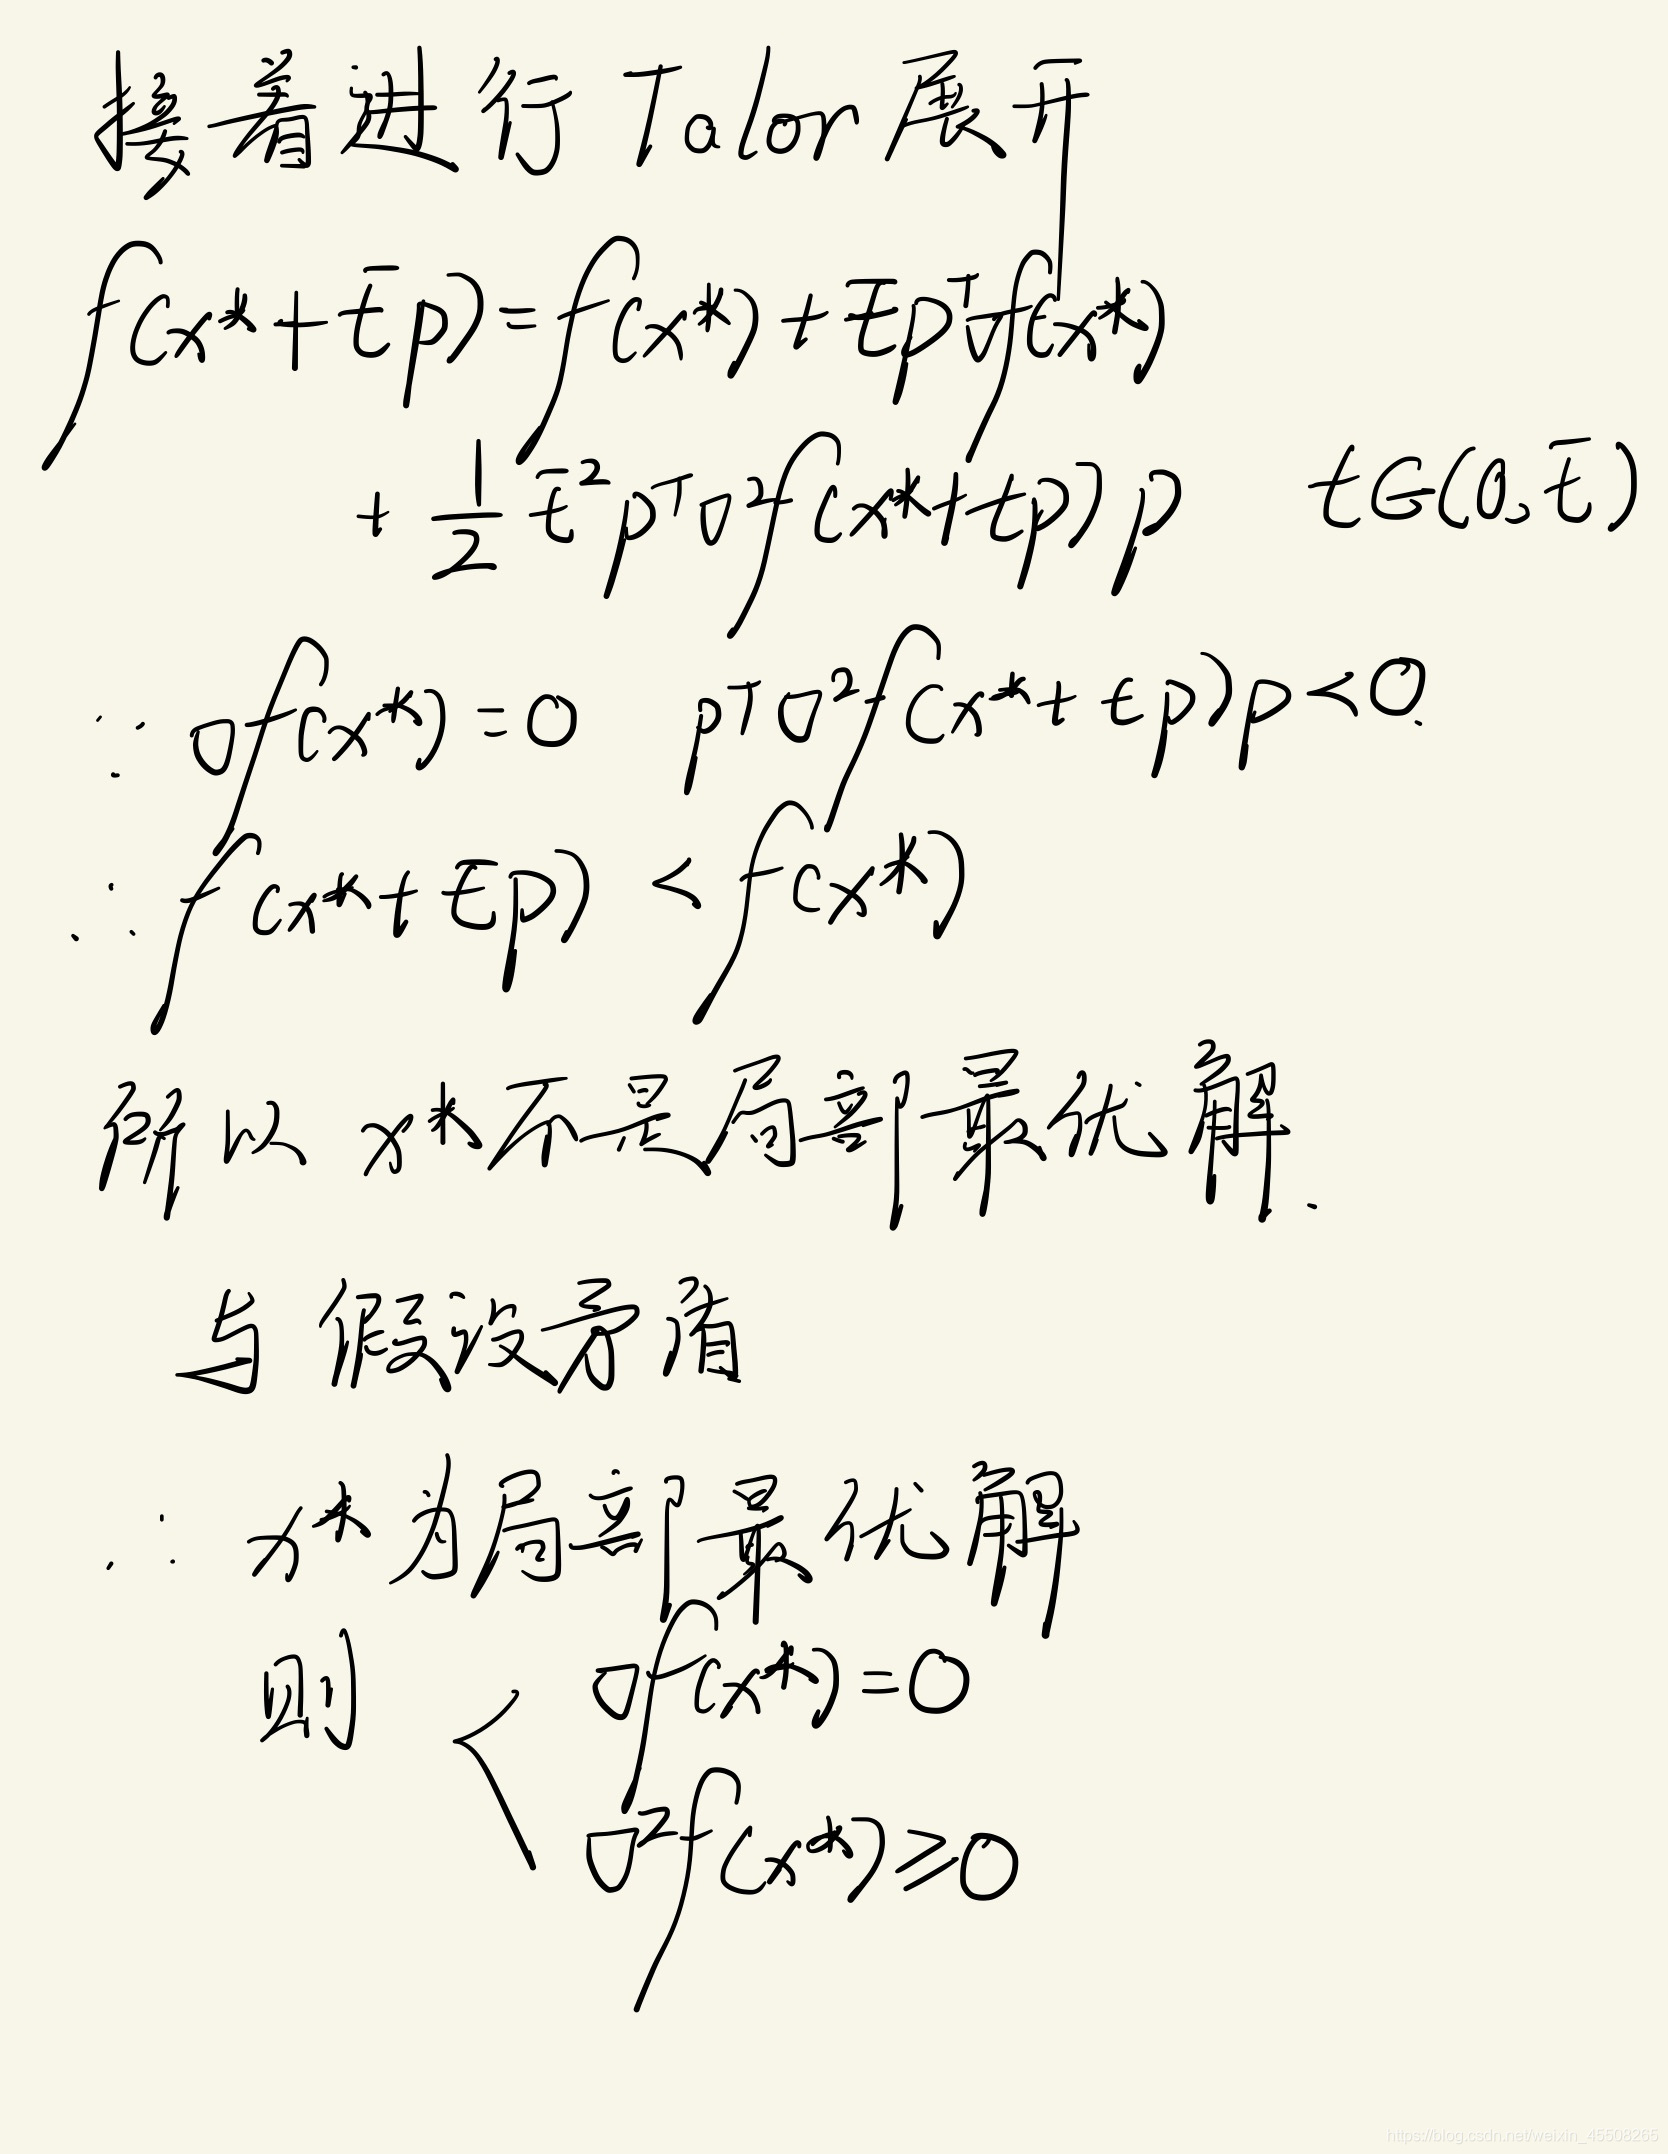 接着进行 Talor 展开
f(x*+t̄p)=f(x*)+t̄pᵀ∇f(x*)
+ 1/2 t̄²pᵀ∇²f(x*+tp)p t∈(0,t̄)
∵ ∇f(x*)=0 pᵀ∇²f(x*+tp)p<0.
∴ f(x*+t̄p)<f(x*)
所以 x*不是局部最优解.
与假设矛盾
∴ x*为局部最优解
则 ∇f(x*)=0
∇²f(x*)≥0
https://blog.csdn.net/weixin_45508265